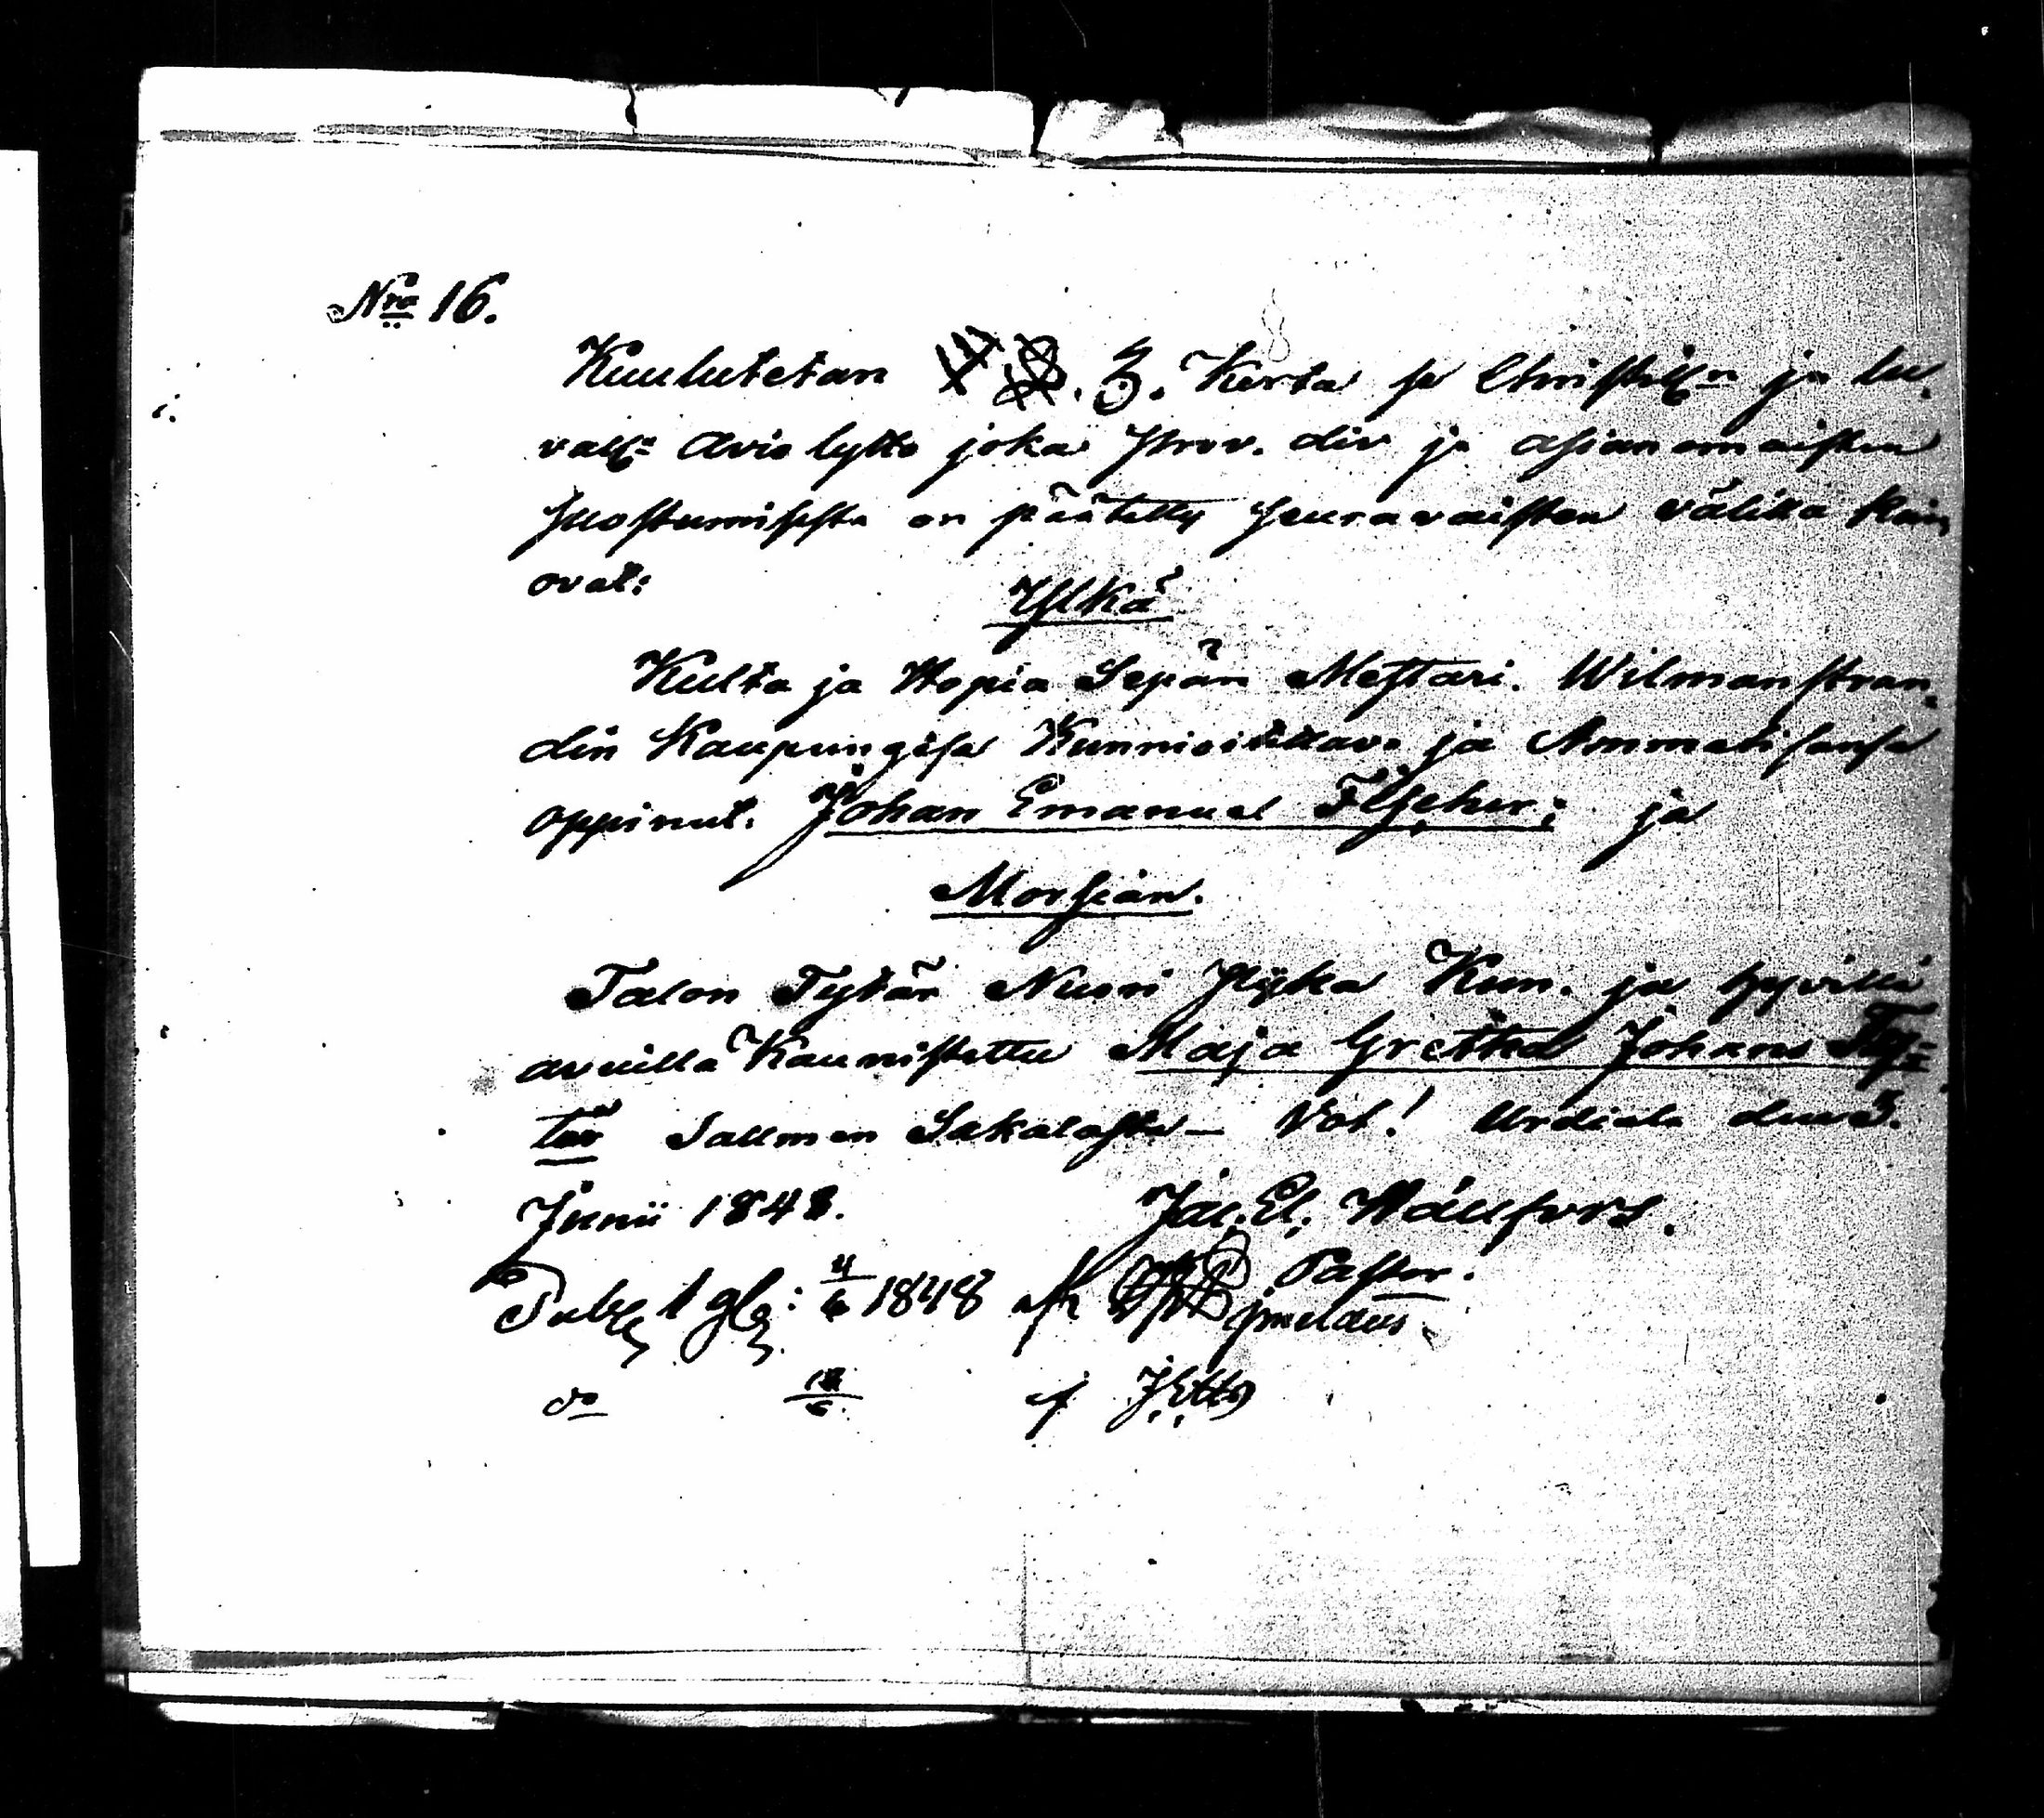 Nro 16.
Kuulutetan 3. Kerta se Christill:n ja lu-
vall: Avio lytto joka prov. div ja asianomaisten
suostumisesta on päätetty seuravaisten välillä kuin
ovat:
Ylkä
Kulta ja Hopia Sepän Mestari. Wilmanstran-
din Kaupungisa Kunnioitettava ja Ammatisansa
oppinut. Johan Emanuel Fischer; ja
Morsian.
Talon Tytär Nuori Piika Kun. ja hyvillä
avuilla Kaunistettu Maja Gretha Johans Ty-
tär Sallmen Sakalasta — Vot! Urdiala den 3.
Junii 1848.
Jac. El. Wallfors.
Pastor.
Publ 1 g: 4/6 1848 af
do af